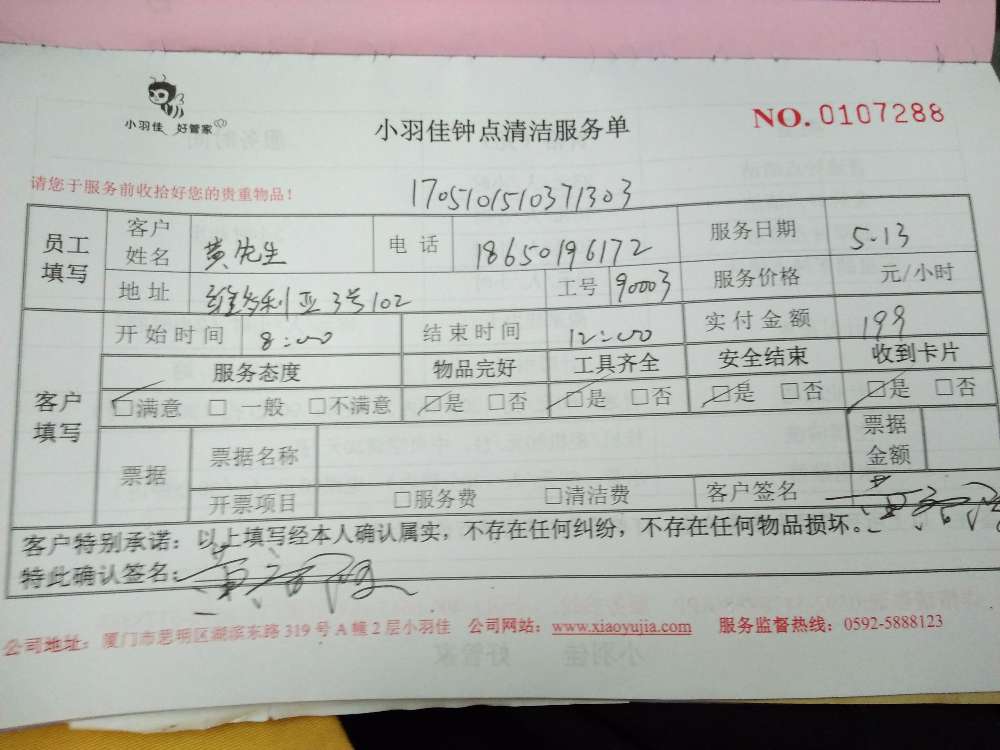 小羽佳 好管家
小羽佳钟点清洁服务单
NO. 0107288
请您于服务前收拾好您的贵重物品！
170510151037​1303
员工填写 客户姓名 黄先生 电话 18650196172 服务日期 5.13
地址 维多利亚3号102 工号 90003 服务价格 元/小时
客户填写 开始时间 8:00 结束时间 12:00 实付金额 199
服务态度 物品完好 工具齐全 安全结束 收到卡片
□满意 □一般 □不满意 □是 □否 □是 □否 □是 □否 □是 □否
票据 票据名称 票据金额
开票项目 □服务费 □清洁费 客户签名
客户特别承诺：以上填写经本人确认属实，不存在任何纠纷，不存在任何物品损坏。
特此确认签名：
公司地址：厦门市思明区湖滨东路319号A幢2层小羽佳 公司网站：www.xiaoyujia.com 服务监督热线：0592-5888123